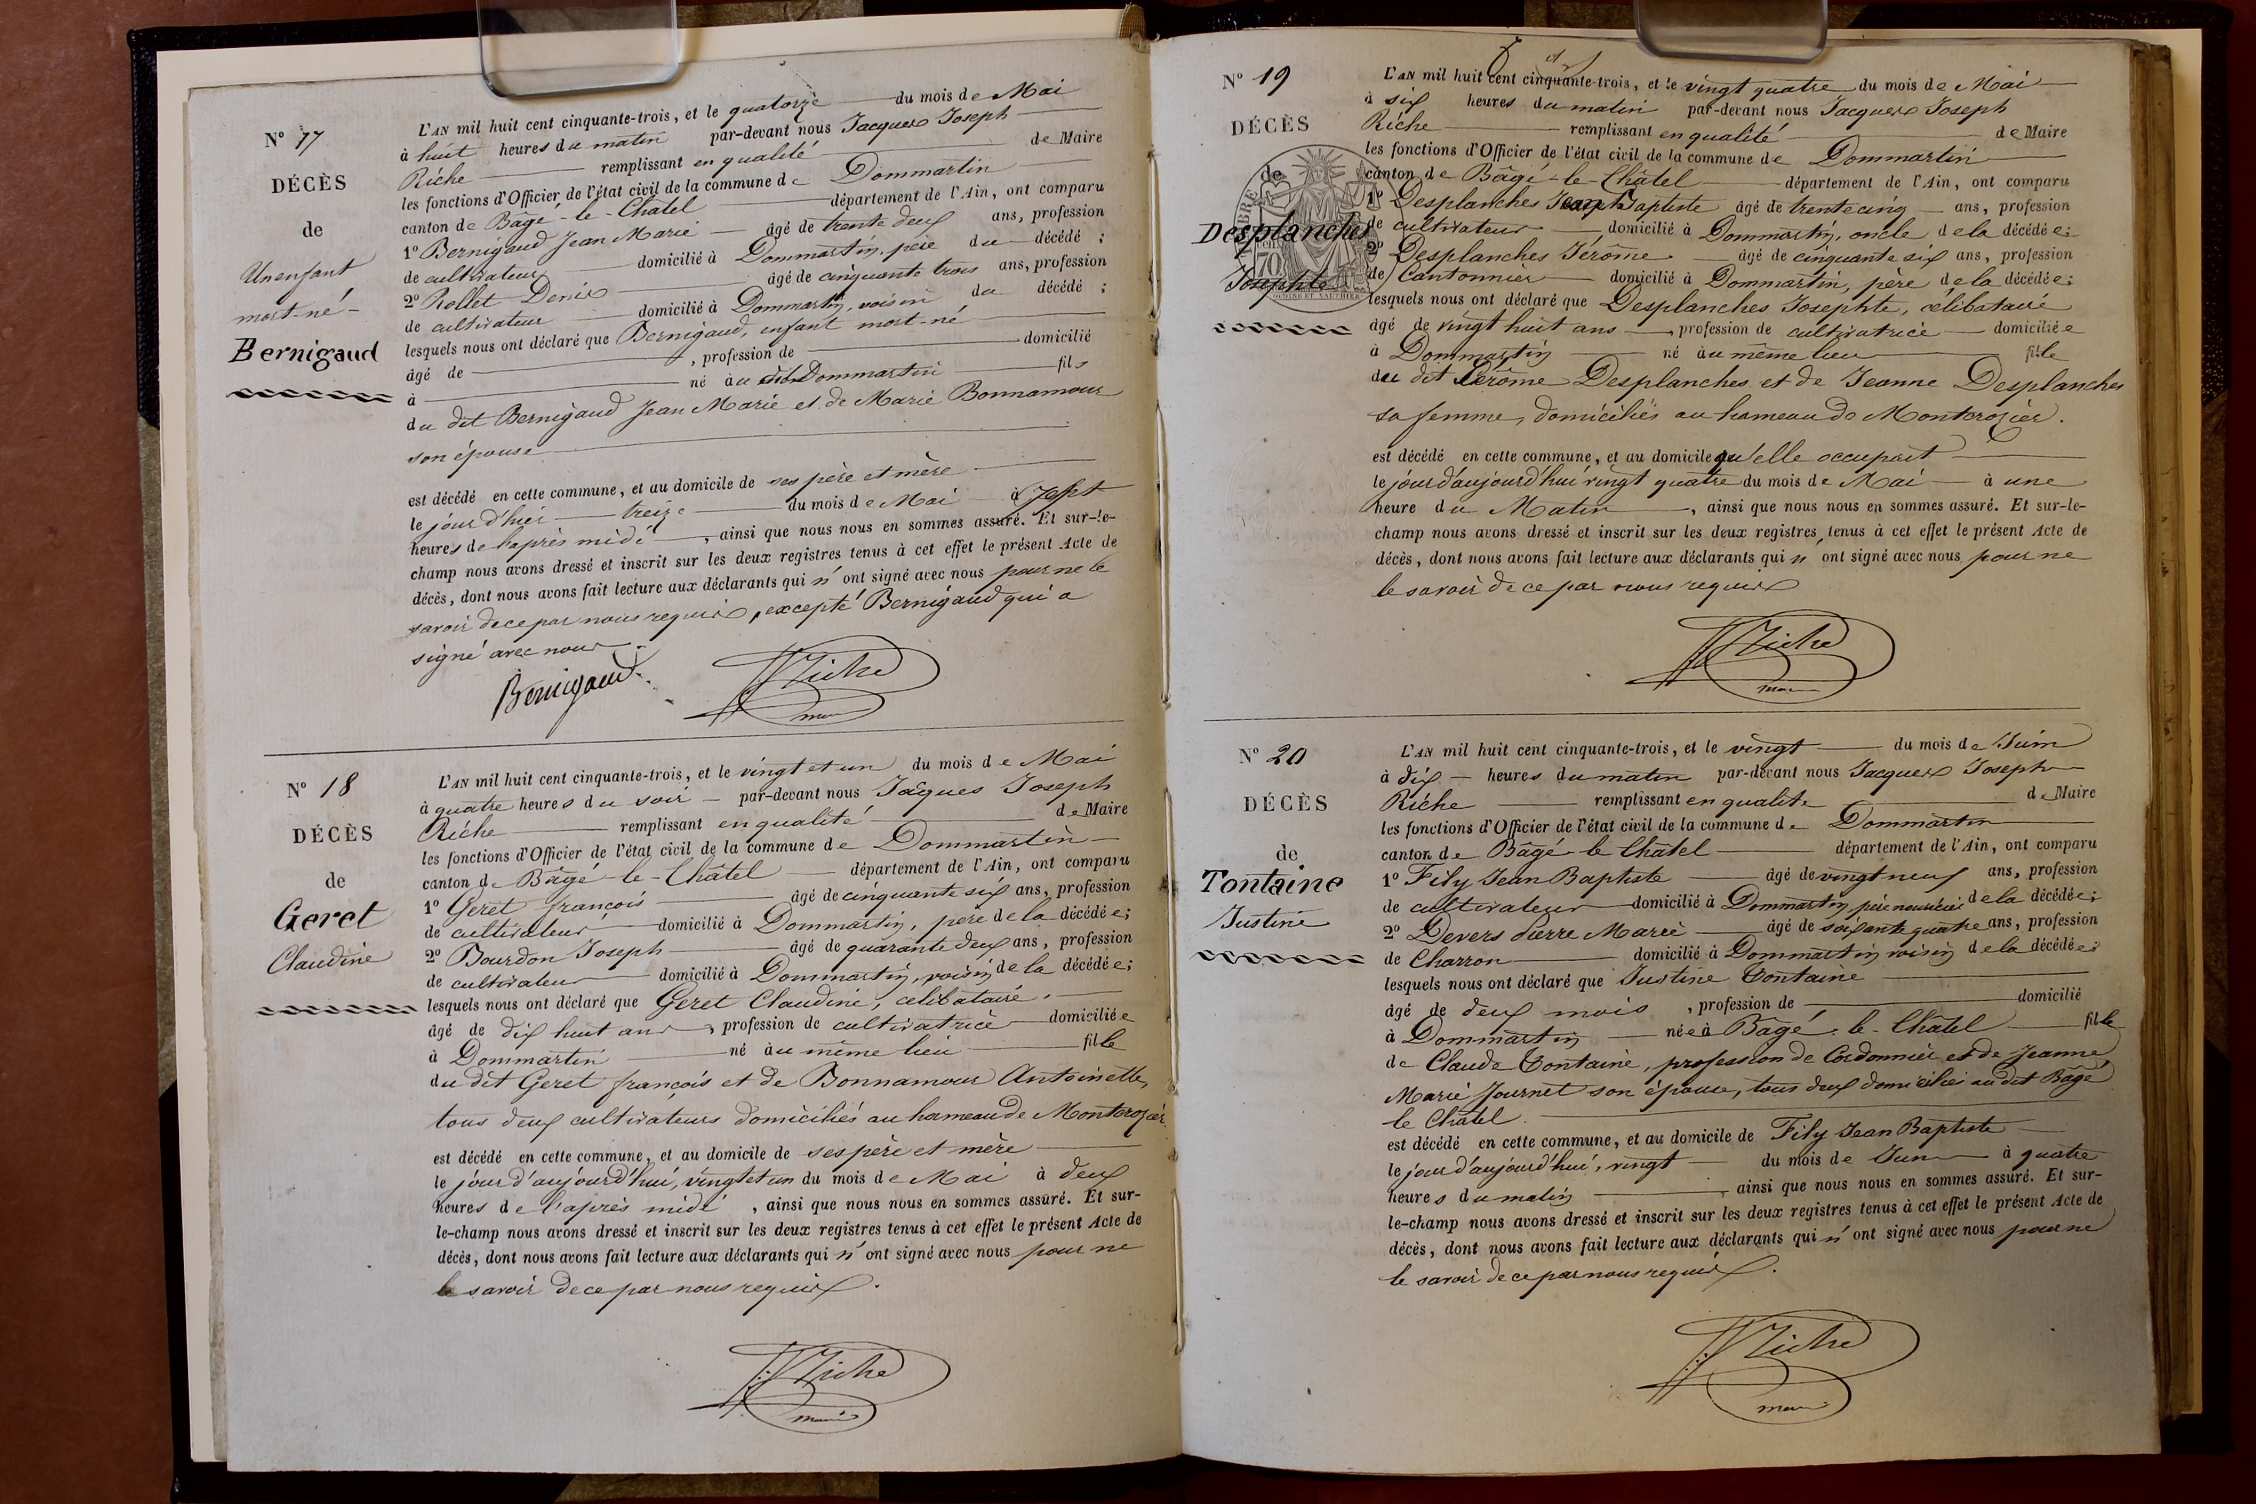 N° 17
DÉCÈS
de
Un enfant
mort-né
Bernigaud
L'AN mil huit cent cinquante-trois, et le quatorze du mois de Mai
à huit heures du matin par-devant nous Jacques Joseph
Riche remplissant en qualité de Maire
les fonctions d'Officier de l'état civil de la commune de Dommartin
canton de Bâgé-le-Châtel département de l'Ain, ont comparu
1° Bernigaud Jean Marie âgé de trente deux ans, profession
de cultivateur domicilié à Dommartin, père du décédé ;
2° Rollet Denis âgé de cinquante trois ans, profession
de cultivateur domicilié à Dommartin, voisin du décédé ;
lesquels nous ont déclaré que Bernigaud, enfant mort-né
âgé de , profession de domicilié
à né au Dommartin fils
du dit Bernigaud Jean Marie et de Marie Bonnamour
son épouse
est décédé en cette commune, et au domicile de ses père et mère
le jour d'hier treize du mois de Mai à sept
heures de l'après midi , ainsi que nous nous en sommes assuré. Et sur-le-
champ nous avons dressé et inscrit sur les deux registres tenus à cet effet le présent Acte de
décès, dont nous avons fait lecture aux déclarants qui n'ont signé avec nous pour ne le
savoir de ce par nous requis, excepté Bernigaud qui a
signé avec nous.
Bernigaud
Riche
maire
N° 18
DÉCÈS
de
Geret
Claudine
L'AN mil huit cent cinquante-trois, et le vingt et un du mois de Mai
à quatre heures du soir par-devant nous Jacques Joseph
Riche remplissant en qualité de Maire
les fonctions d'Officier de l'état civil de la commune de Dommartin
canton de Bâgé-le-Châtel département de l'Ain, ont comparu
1° Geret françois âgé de cinquante six ans, profession
de cultivateur domicilié à Dommartin, père de la décédée;
2° Bourdon Joseph âgé de quarante deux ans, profession
de cultivateur domicilié à Dommartin, voisin de la décédée;
lesquels nous ont déclaré que Geret Claudine, célibataire,
âgé de dix huit ans, profession de cultivatrice domiciliée
à Dommartin né au même lieu fille
du dit Geret françois et de Bonnamour Antoinette,
tous deux cultivateurs domiciliés au hameau de Montcrozier
est décédé en cette commune, et au domicile de ses père et mère
le jour d'aujourd'hui, vingt et un du mois de Mai à deux
heures de l'après midi , ainsi que nous nous en sommes assuré. Et sur-
le-champ nous avons dressé et inscrit sur les deux registres tenus à cet effet le présent Acte de
décès, dont nous avons fait lecture aux déclarants qui n'ont signé avec nous pour ne
le savoir de ce par nous requis.
Riche
maire
N° 19
DÉCÈS
de
Desplanches
Josephte
L'AN mil huit cent cinquante-trois, et le vingt quatre du mois de Mai
à six heures du matin par-devant nous Jacques Joseph
Riche remplissant en qualité de Maire
les fonctions d'Officier de l'état civil de la commune de Dommartin
canton de Bâgé-le-Châtel département de l'Ain, ont comparu
1° Desplanches Jean Baptiste âgé de trente cinq ans, profession
de cultivateur domicilié à Dommartin, oncle de la décédée;
2° Desplanches Jérôme âgé de cinquante six ans, profession
de Cantonnier domicilié à Dommartin, père de la décédée;
lesquels nous ont déclaré que Desplanches Josephte, célibataire
âgé de vingt huit ans, profession de cultivatrice domiciliée
à Dommartin né au même lieu fille
du dit Jérôme Desplanches et de Jeanne Desplanches
sa femme, domiciliés au hameau de Montcrozier.
est décédé en cette commune, et au domicile qu'elle occupait
le jour d'aujourd'hui vingt quatre du mois de Mai à une
heure du Matin , ainsi que nous nous en sommes assuré. Et sur-le-
champ nous avons dressé et inscrit sur les deux registres tenus à cet effet le présent Acte de
décès, dont nous avons fait lecture aux déclarants qui n'ont signé avec nous pour ne
le savoir de ce par nous requis
Riche
maire
N° 20
DÉCÈS
de
Tontaine
Justine
L'AN mil huit cent cinquante-trois, et le vingt du mois de Juin
à dix heures du matin par-devant nous Jacques Joseph
Riche remplissant en qualité de Maire
les fonctions d'Officier de l'état civil de la commune de Dommartin
canton de Bâgé le Châtel département de l'Ain, ont comparu
1° Fily Jean Baptiste âgé de vingt neuf ans, profession
de cultivateur domicilié à Dommartin père nourricier de la décédée;
2° Devers Pierre Marie âgé de soixante quatre ans, profession
de Charron domicilié à Dommartin voisin de la décédée;
lesquels nous ont déclaré que Justine Tontaine
âgé de deux mois , profession de domicilié
à Dommartin née à Bâgé-le-Châtel fille
de Claude Tontaine, profession de Cordonnier et de Jeanne
Marie Journet son épouse, tous deux domiciliés au dit Bâgé
le Châtel
est décédé en cette commune, et au domicile de Fily Jean Baptiste
le jour d'aujourd'hui, vingt du mois de Juin à quatre
heures du matin , ainsi que nous nous en sommes assuré. Et sur-
le-champ nous avons dressé et inscrit sur les deux registres tenus à cet effet le présent Acte de
décès, dont nous avons fait lecture aux déclarants qui n'ont signé avec nous pour ne
le savoir de ce par nous requis.
Riche
maire